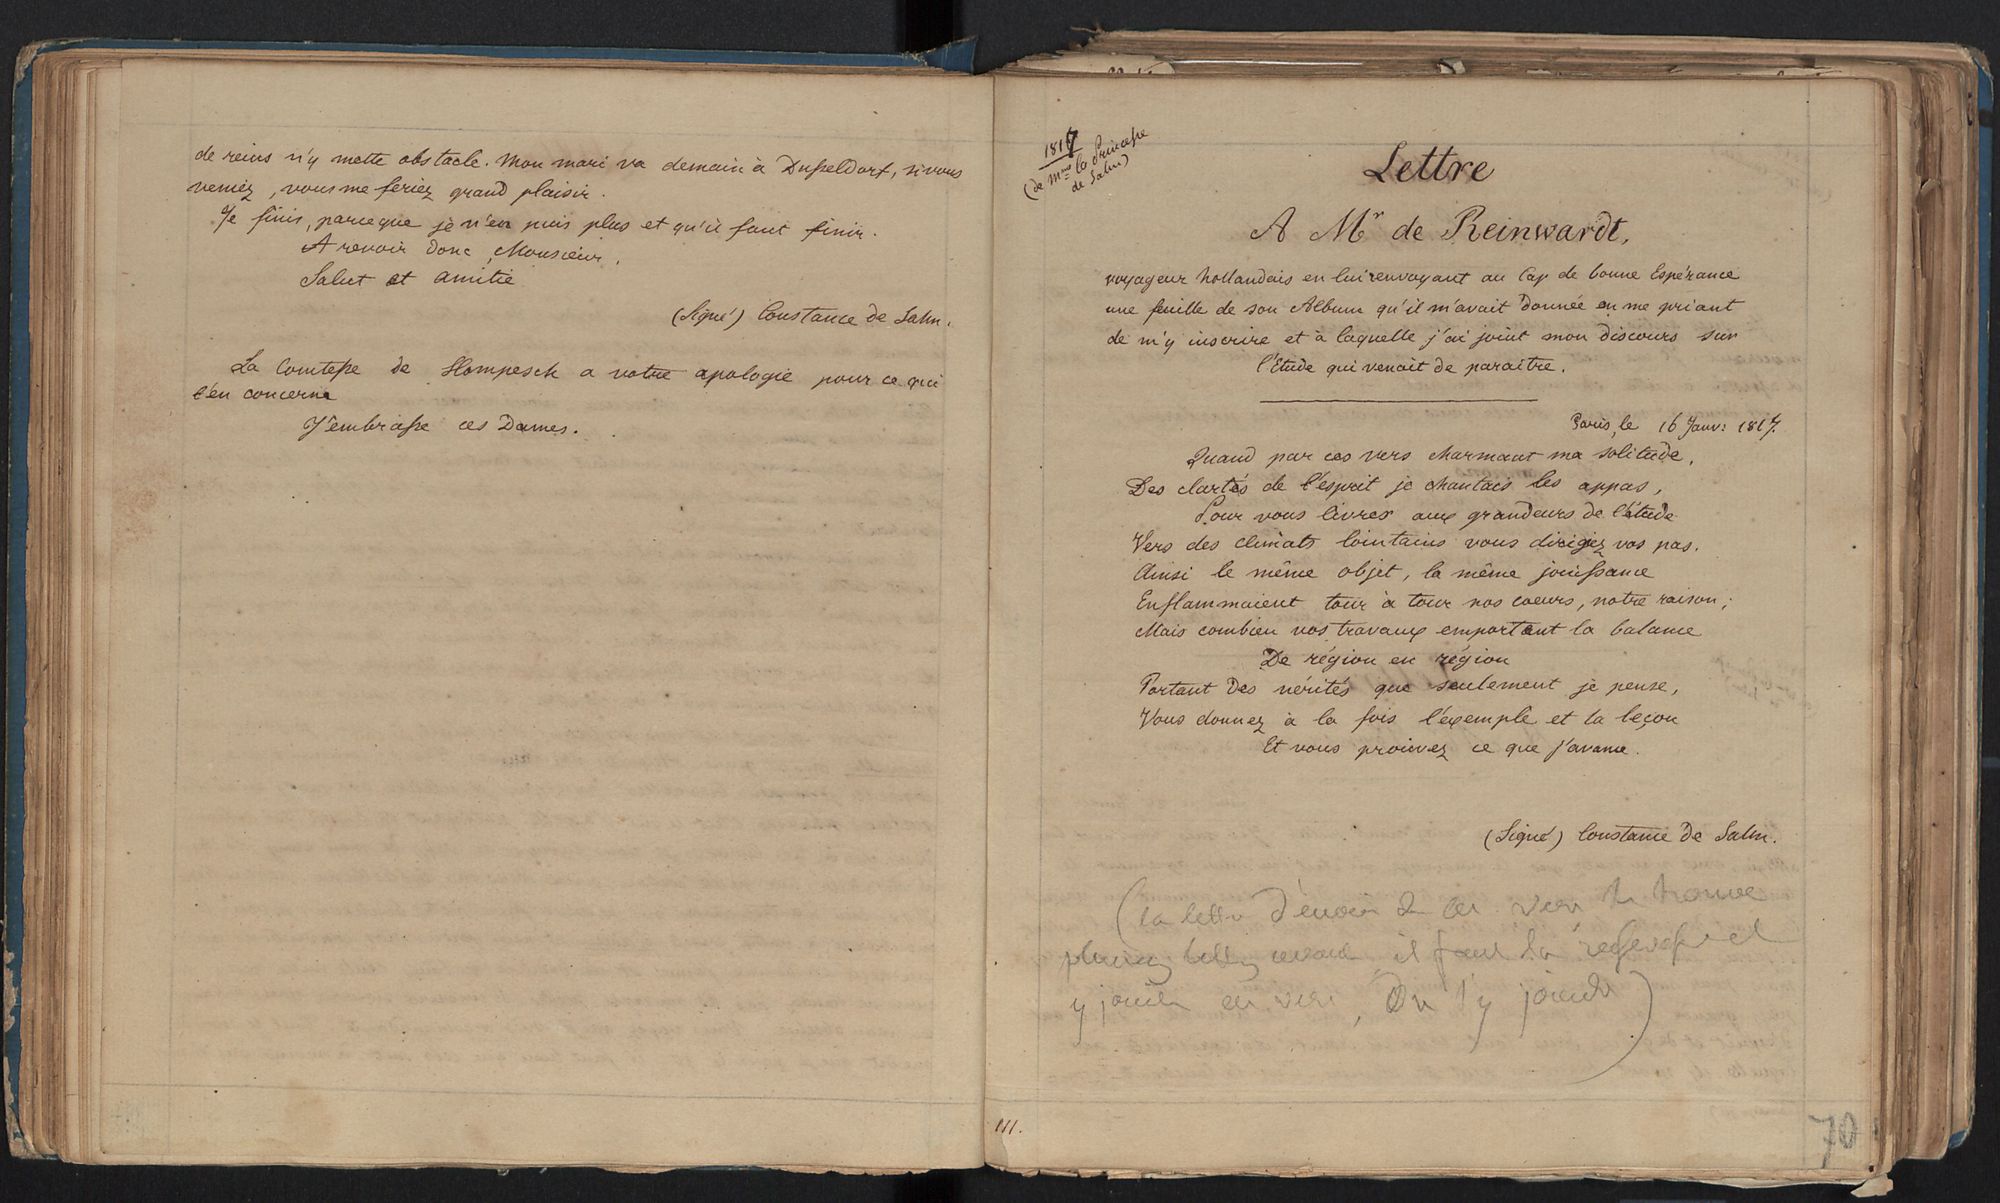 de reins n'y mette obstacle. Mon mari va demain à Dusseldorf, si vous
veniez, vous me feriez grand plaisir.
Je finis, parceque je n'en puis plus et qu'il faut finir.
A revoir donc, Monsieur,
Salut et amitié
(Signé) Constance de Salm.
La Comtesse de Hompesch a votre apologie pour ce qui
l'en concerne
J'embrasse ces Dames.
1817
(de Mme la Princesse
de Salm)
Lettre
A Mr de Reinwardt,
voyageur hollandais en lui renvoyant au Cap de bonne Espérance
une feuille de son Album qu'il m'avait donnée en me priant
de m'y inscrire et à laquelle j'ai joint mon discours sur
l'Etude qui venait de paraître.
Paris, le 16 Janv: 1817.
Quand par ces vers charmant ma solitude,
Des clartés de l'esprit je chantais les appas,
Pour vous livrer aux grandeurs de l'étude
Vers des climats lointains vous dirigiez vos pas.
Ainsi le même objet, la même jouissance
Enflammaient tour à tour nos coeurs, notre raison;
Mais combien vos travaux emportent la balance
De région en région
Portant des vérités que seulement je pense,
Vous donnez à la fois l'exemple et la leçon
Et vous prouvez ce que j'avance.
(Signé) Constance de Salm.
(la lettre d'envoi de ces vers se trouve
plusieurs il faut la et
y joindre ces vers, On l'y joindra)
111.
70